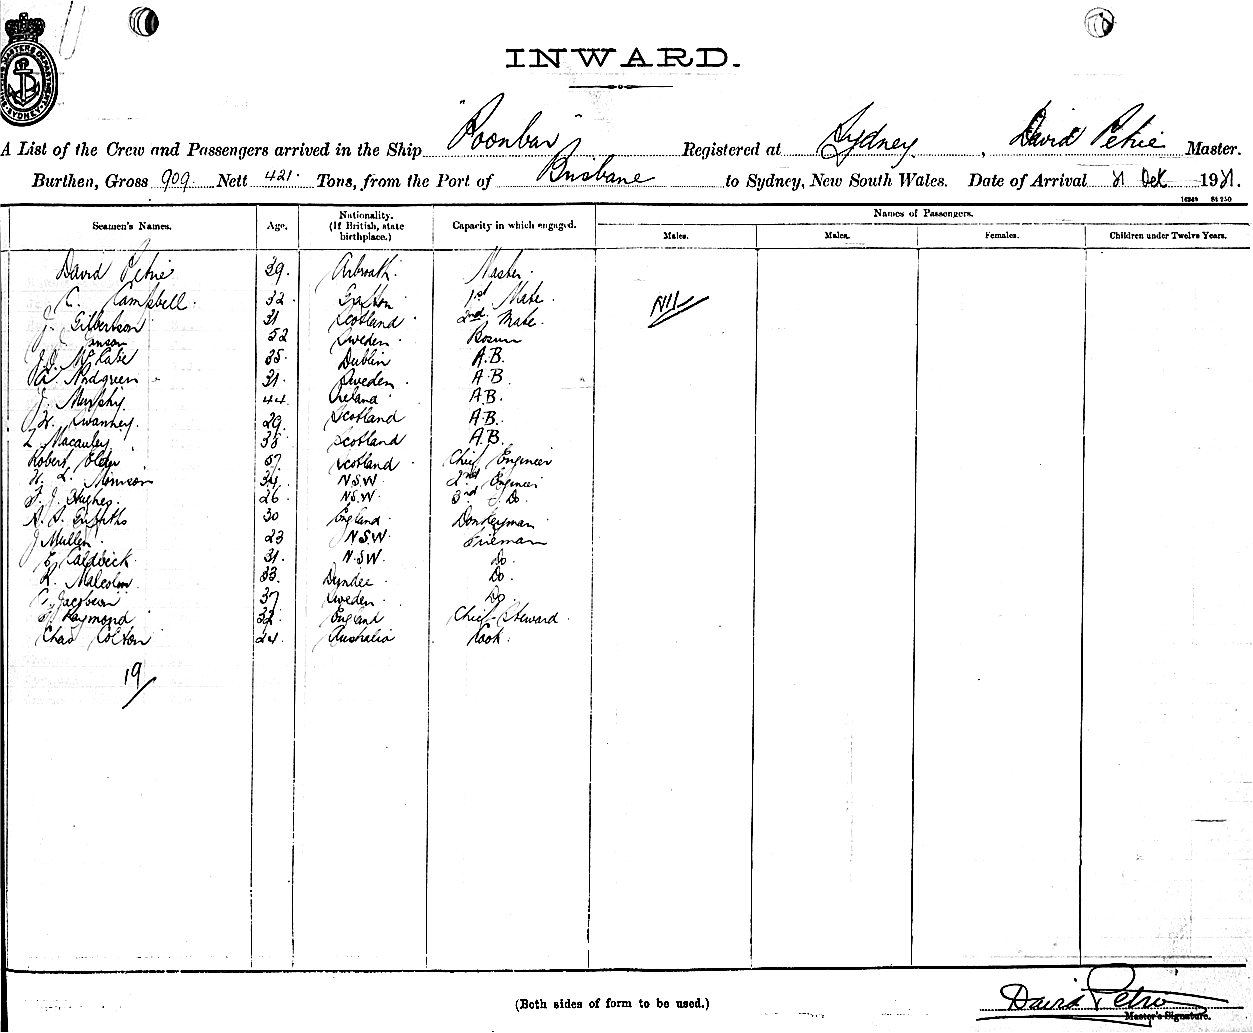 INWARD.
"Poonbar"
A List of the Crew and Passengers arrived in the Ship Registered at Sydney, David Petrie Master.
Burthen, Gross 909 Nett 421. Tons, from the Port of Brisbane to Sydney, New South Wales. Date of Arrival 21 Dec 1921.
Seamen's Names. Age. Nationality. (If British, state birthplace.) Capacity in which engaged. Names of Passengers.
Males. Males. Females. Children under Twelve Years.
David Petrie 39. Arbroath. Master.
C. Campbell. 32 Grafton 1st Mate Nil
J. Gilbertson 31 Scotland 2nd Mate.
52 Sweden. Bosun
J. D. McCabe 35. Dublin A.B.
A. Nordgreen 31. Sweden A.B.
J. Murphy 44 Ireland A.B.
W. Swanney. 29. Scotland A.B.
L Macauley 38 Scotland A.B.
Robert Elder 57 Scotland Chief Engineer
W. L. Morrison 34. N.S.W. 2nd Engineer
F. J. Hughes. 26 N.S.W. 3rd Do.
A. S. Griffiths 30 England Donkeyman
J Mullen. 23 N.S.W. Fireman
E. Caldbeck. 31. N.S.W. Do.
R. Malcolm 33. Dundee Do.
C. Jacobson 37 Sweden. Do
Raymond 32. England Chief Steward.
Chas Colton 24. Australia Cook.
19
(Both sides of form to be used.)
David Petrie
Master's Signature.